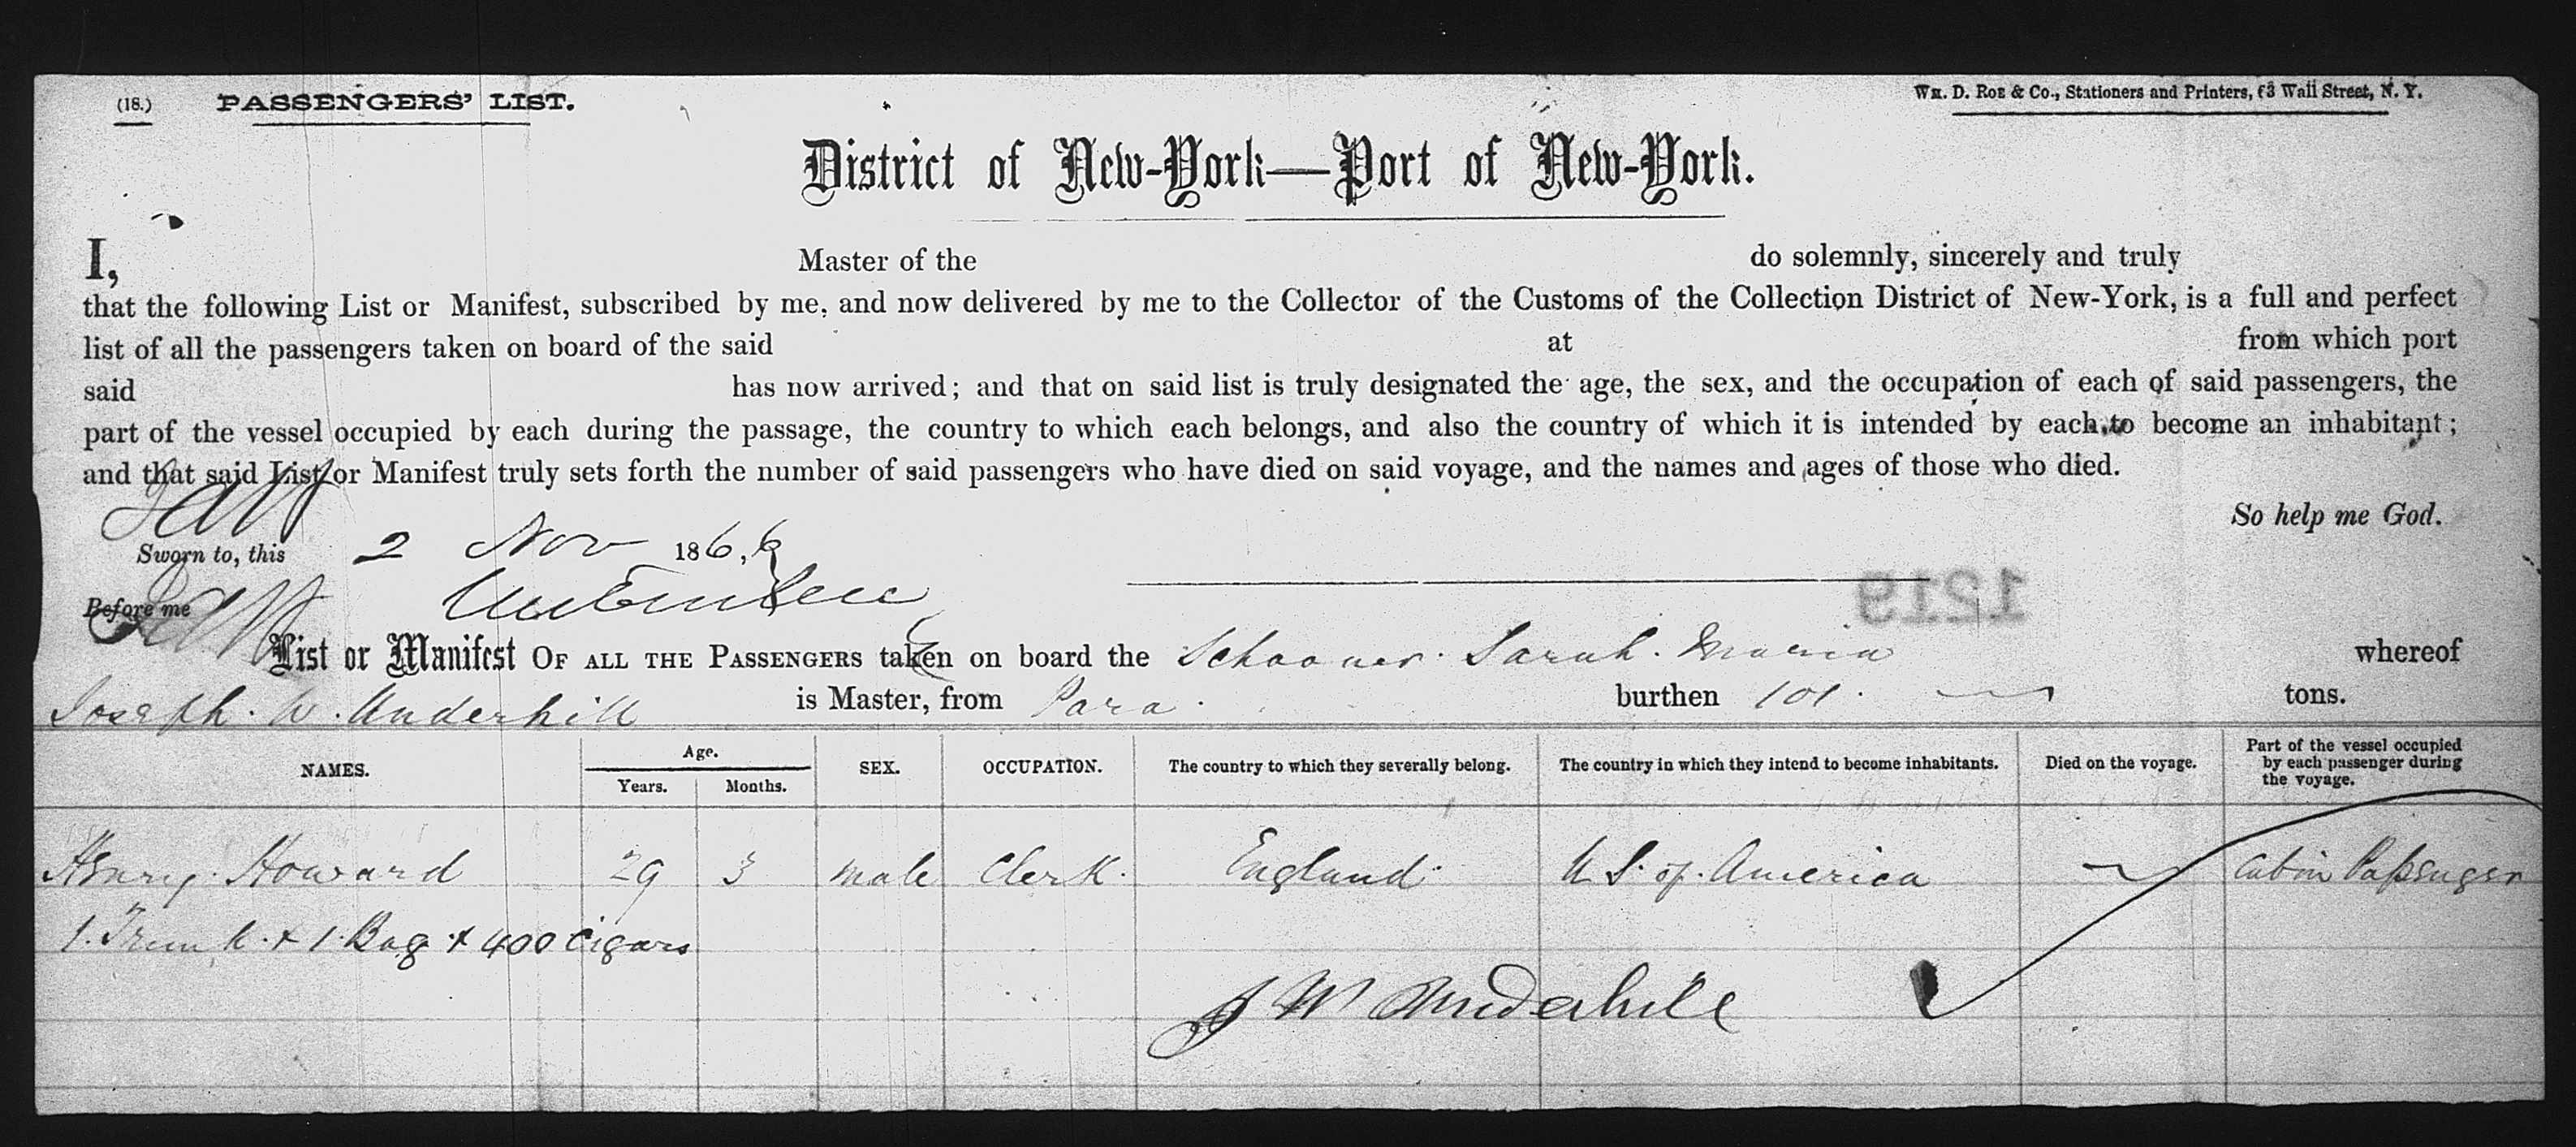 (18.) PASSENGERS' LIST.
WM. D. ROE & Co., Stationers and Printers, 63 Wall Street, N. Y.
District of New-York—Port of New-York.
I, Master of the do solemnly, sincerely and truly
that the following List or Manifest, subscribed by me, and now delivered by me to the Collector of the Customs of the Collection District of New-York, is a full and perfect
list of all the passengers taken on board of the said at from which port
said has now arrived; and that on said list is truly designated the age, the sex, and the occupation of each of said passengers, the
part of the vessel occupied by each during the passage, the country to which each belongs, and also the country of which it is intended by each to become an inhabitant;
and that said List or Manifest truly sets forth the number of said passengers who have died on said voyage, and the names and ages of those who died.
So help me God.
Sworn to, this 2 Nov 1866
Before me
1219
List or Manifest OF ALL THE PASSENGERS taken on board the Schooner Sarah Maria whereof
Joseph. W. Underhill is Master, from Para burthen 101 tons.
NAMES. Age. Years. Months. SEX. OCCUPATION. The country to which they severally belong. The country in which they intend to become inhabitants. Died on the voyage. Part of the vessel occupied by each passenger during the voyage.
Henry Howard 29 3 male Clerk. England U S. of America Cabin Passenger
1. Trunk + 1. Bag + 400 Cigars
J W Underhill